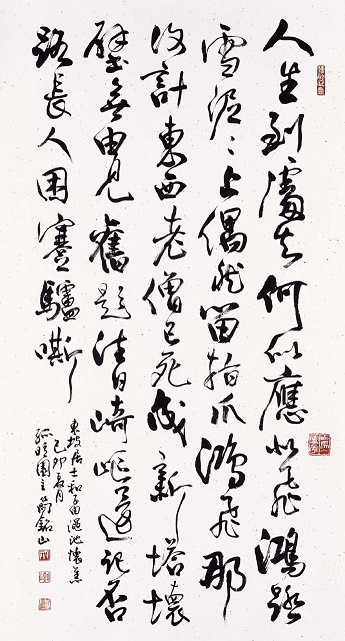 人生到處知何似應似飛鴻踏
雪泥〻上偶然留指爪鴻飛那
復計東西老僧已死成新塔壞
壁無由見舊題往日崎嶇還記否
路長人困蹇驢嘶
東坡居士和子由澠池懷舊
己卯夏月
園主簡銘山